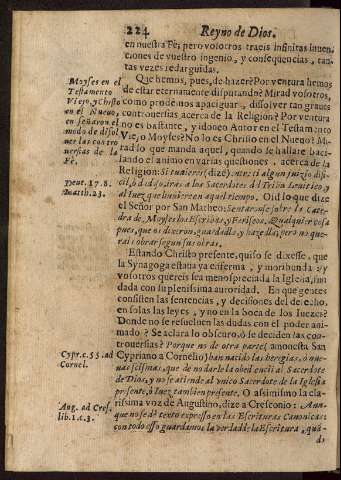 224 Reyno de Dios.
en nuestra Fè; pero vosotros traeis infinitas inuen-
ciones de vuestro ingenio, y consequencias, tan-
tas vezes redarguidas.
Que hemos, pues, de hazer? Por ventura hemos
de estar eternamente disputando? Mirad vosotros,
como podemos apaciguar, dissolver tan graues
controuersias acerca de la Religion? Por ventura
no es bastante, y idoneo Autor en el Testamento
Vie, o Moyses? No lo es Christo en el Nueuo? Mi-
rad lo que manda aquel, quando se hallare baci-
lando el animo en varias questiones, acerca de la
Religion: Si tuuieres (dize) entre ti algun juizio difi-
cil, ò dudoso, iras a los Sacerdotes del Tribu Leuitico, y
al Iuez que huuiere en aquel tiempo. Oid lo que dize
el Señor por San Matheo: Sentaronse sobre la Cate-
dra de Moyses los Escribas, y Fariseos. Qualquier cosa
pues, que os dixeren, guardadlo, y hazedla; pero no que-
rais obrar segun sus obras.
Estando Christo presente, quiso se dixesse, que
la Synagoga estaua ya enferma, y moribunda; y
vosotros quereis sea menospreciada la Iglesia, fun-
dada con su plenissima autoridad. En que gentes
consisten las sentencias, y decisiones del derecho,
en solas las leyes, y no en la boca de los Iuezes?
Donde no se resueluen las dudas con el poder ani-
mado? Se aclara lo obscuro, ò se deciden las con-
trouersias? Porque no de otra parte (amonesta San
Cypriano a Cornelio) han nacido las heregias, ò nue-
uas scismas, que de no darle la obediencia al Sacerdote
de Dios, y no se atiende al vnico Sacerdote de la Iglesia
presente, ò Iuez tambien presente. O assimismo la cla-
rissima voz de Augustino, dize a Cresconio: Aun-
que no se dè texto expresso en las Escrituras Canonicas:
con todo esso guardamos la verdad de la Escritura, quã-
do
Moyses en el
Testamento
Viejo, y Christo
en el Nueuo,
enseñaron el
modo de disol-
uer las contro
uersias de la
Fè.
Deut. 17.8.
Matth. 23.
Cypr. c. 55. ad
Cornel.
Aug. ad Cres.
lib. 1. c. 3.